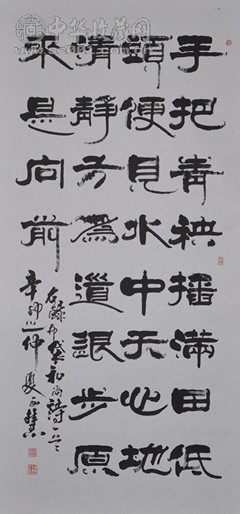 手把青秧插滿田低
頭便見水中天心地
清靜方為道退步原
來是向前
右錄布袋和尚詩一首
辛卯仲夏